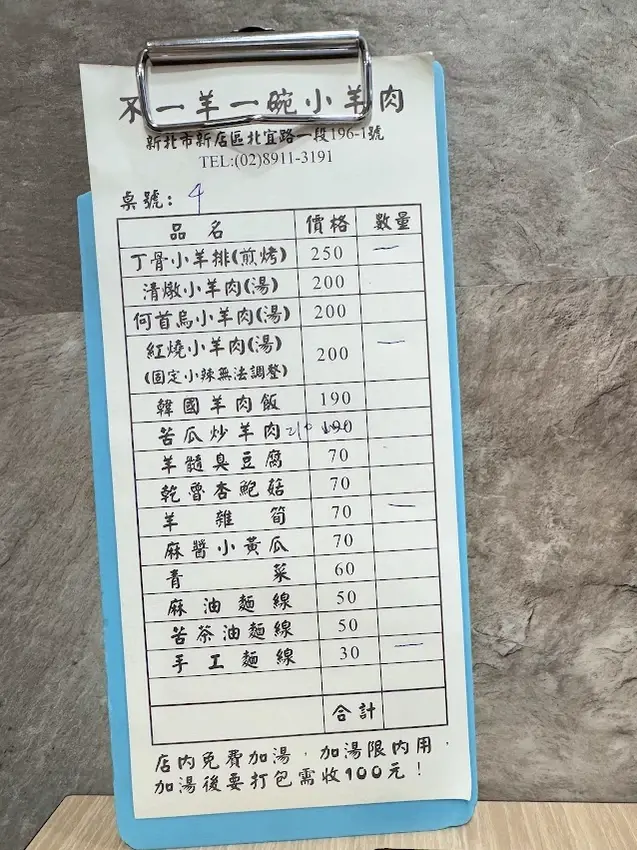 不一羊一碗小羊肉
新北市新店區北宜路一段196-1號
TEL:(02)8911-3191
桌號: 4
品名 價格 數量
丁骨小羊排(煎烤) 250 一
清燉小羊肉(湯) 200
何首烏小羊肉(湯) 200
紅燒小羊肉(湯) 200 一
(固定小辣無法調整)
韓國羊肉飯 190
苦瓜炒羊肉 210 190
羊髓臭豆腐 70
乾魯杏鮑菇 70
羊雜筍 70 一
麻醬小黃瓜 70
青菜 60
麻油麵線 50
苦茶油麵線 50
手工麵線 30 一
合計
店內免費加湯,加湯限內用,
加湯後要打包需收100元!